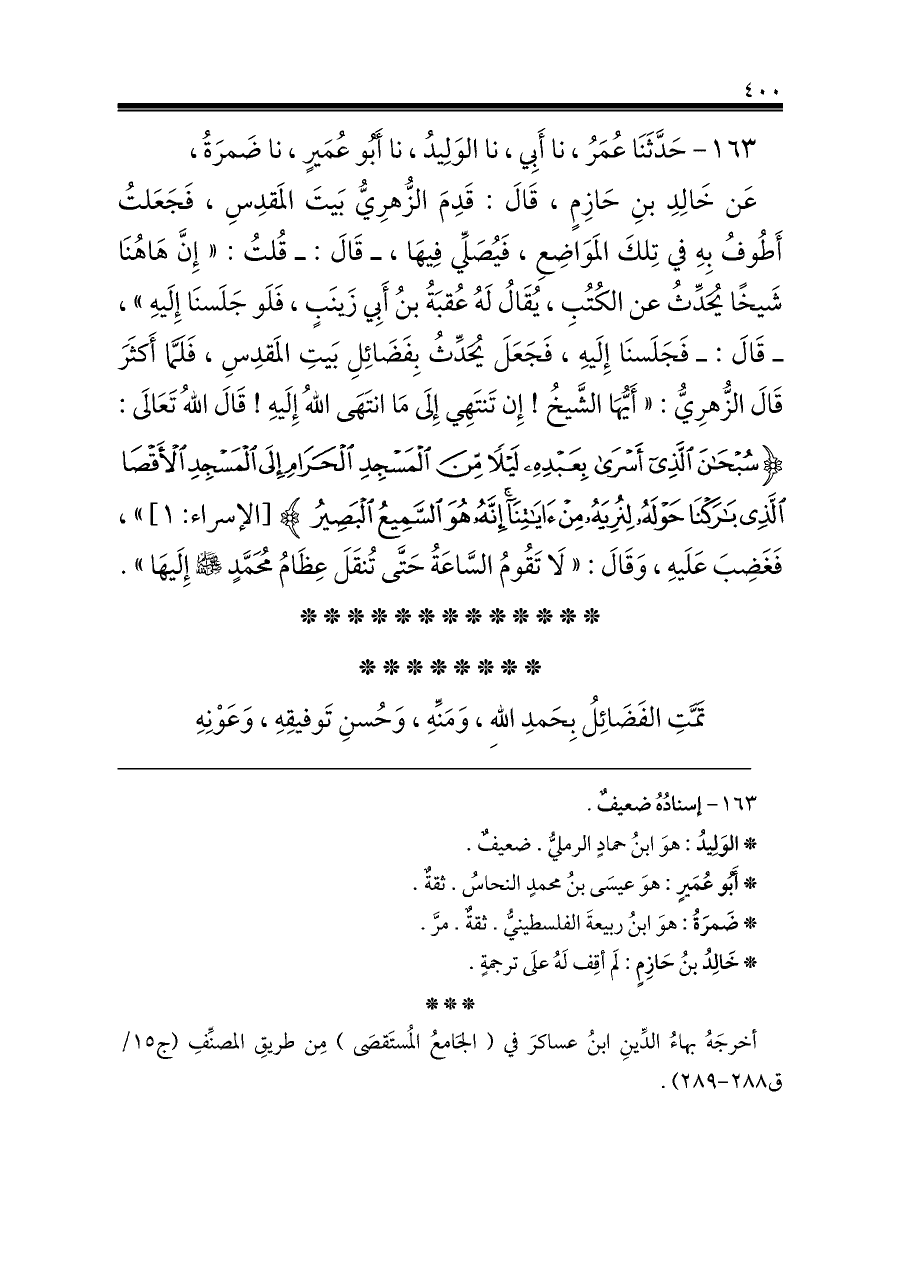 ٤٠٠
١٦٣- حَدَّثَنَا عُمَرُ ، نا أَبِي ، نا الوَلِيدُ ، نا أَبُو عُمَيرٍ ، نا ضَمرَةُ ،
عَن خَالِدِ بنِ حَازِمٍ ، قَالَ : قَدِمَ الزُّهرِيُّ بَيتَ المَقدِسِ ، فَجَعَلتُ
أَطُوفُ بِهِ فِي تِلكَ المَوَاضِعِ ، فَيُصَلِّي فِيهَا ، ـ قَالَ : ـ قُلتُ : « إِنَّ هَاهُنَا
شَيخًا يُحَدِّثُ عن الكُتُبِ ، يُقَالُ لَهُ عُقبَةُ بنُ أَبِي زَينَبٍ ، فَلَو جَلَسنَا إِلَيهِ » ،
ـ قَالَ : ـ فَجَلَسنَا إِلَيهِ ، فَجَعَلَ يُحَدِّثُ بِفَضَائِلِ بَيتِ المَقدِسِ ، فَلَمَّا أَكثَرَ
قَالَ الزُّهرِيُّ : « أَيُّهَا الشَّيخُ ! إِن تَنتَهِي إِلَى مَا انتَهَى اللهُ إِلَيهِ ! قَالَ اللهُ تَعَالَى :
﴿ سُبْحَٰنَ ٱلَّذِىٓ أَسْرَىٰ بِعَبْدِهِۦ لَيْلًا مِّنَ ٱلْمَسْجِدِ ٱلْحَرَامِ إِلَى ٱلْمَسْجِدِ ٱلْأَقْصَا
ٱلَّذِى بَٰرَكْنَا حَوْلَهُۥ لِنُرِيَهُۥ مِنْ ءَايَٰتِنَآ ۚ إِنَّهُۥ هُوَ ٱلسَّمِيعُ ٱلْبَصِيرُ ﴾ [الإسراء: ١] » ،
فَغَضِبَ عَلَيهِ ، وَقَالَ : « لَا تَقُومُ السَّاعَةُ حَتَّى تُنقَلَ عِظَامُ مُحَمَّدٍ ﷺ إِلَيهَا » .
* * * * * * * * * * * * *
* * * * * * * *
تَمَّتِ الفَضَائِلُ بِحَمدِ اللهِ ، وَمَنِّهِ ، وَحُسنِ تَوفِيقِهِ ، وَعَوْنِهِ
١٦٣- إسنادُهُ ضعيفٌ .
* الوَلِيدُ : هوَ ابنُ حمادٍ الرمليُّ . ضعيفٌ .
* أَبُو عُمَيرٍ : هوَ عيسَى بنُ محمدٍ النحاسُ . ثقةٌ .
* ضَمرَةُ : هوَ ابنُ ربيعةَ الفلسطينيُّ . ثقةٌ . مرَّ .
* خَالِدُ بنُ حَازِمٍ : لَم أقِف لَهُ علَى ترجمةٍ .
* * *
أخرجَهُ بهاءُ الدِّينِ ابنُ عساكرَ في ( الجَامعُ المُستَقصَى ) مِن طريقِ المصنِّفِ (ج١٥/
ق٢٨٨-٢٨٩) .